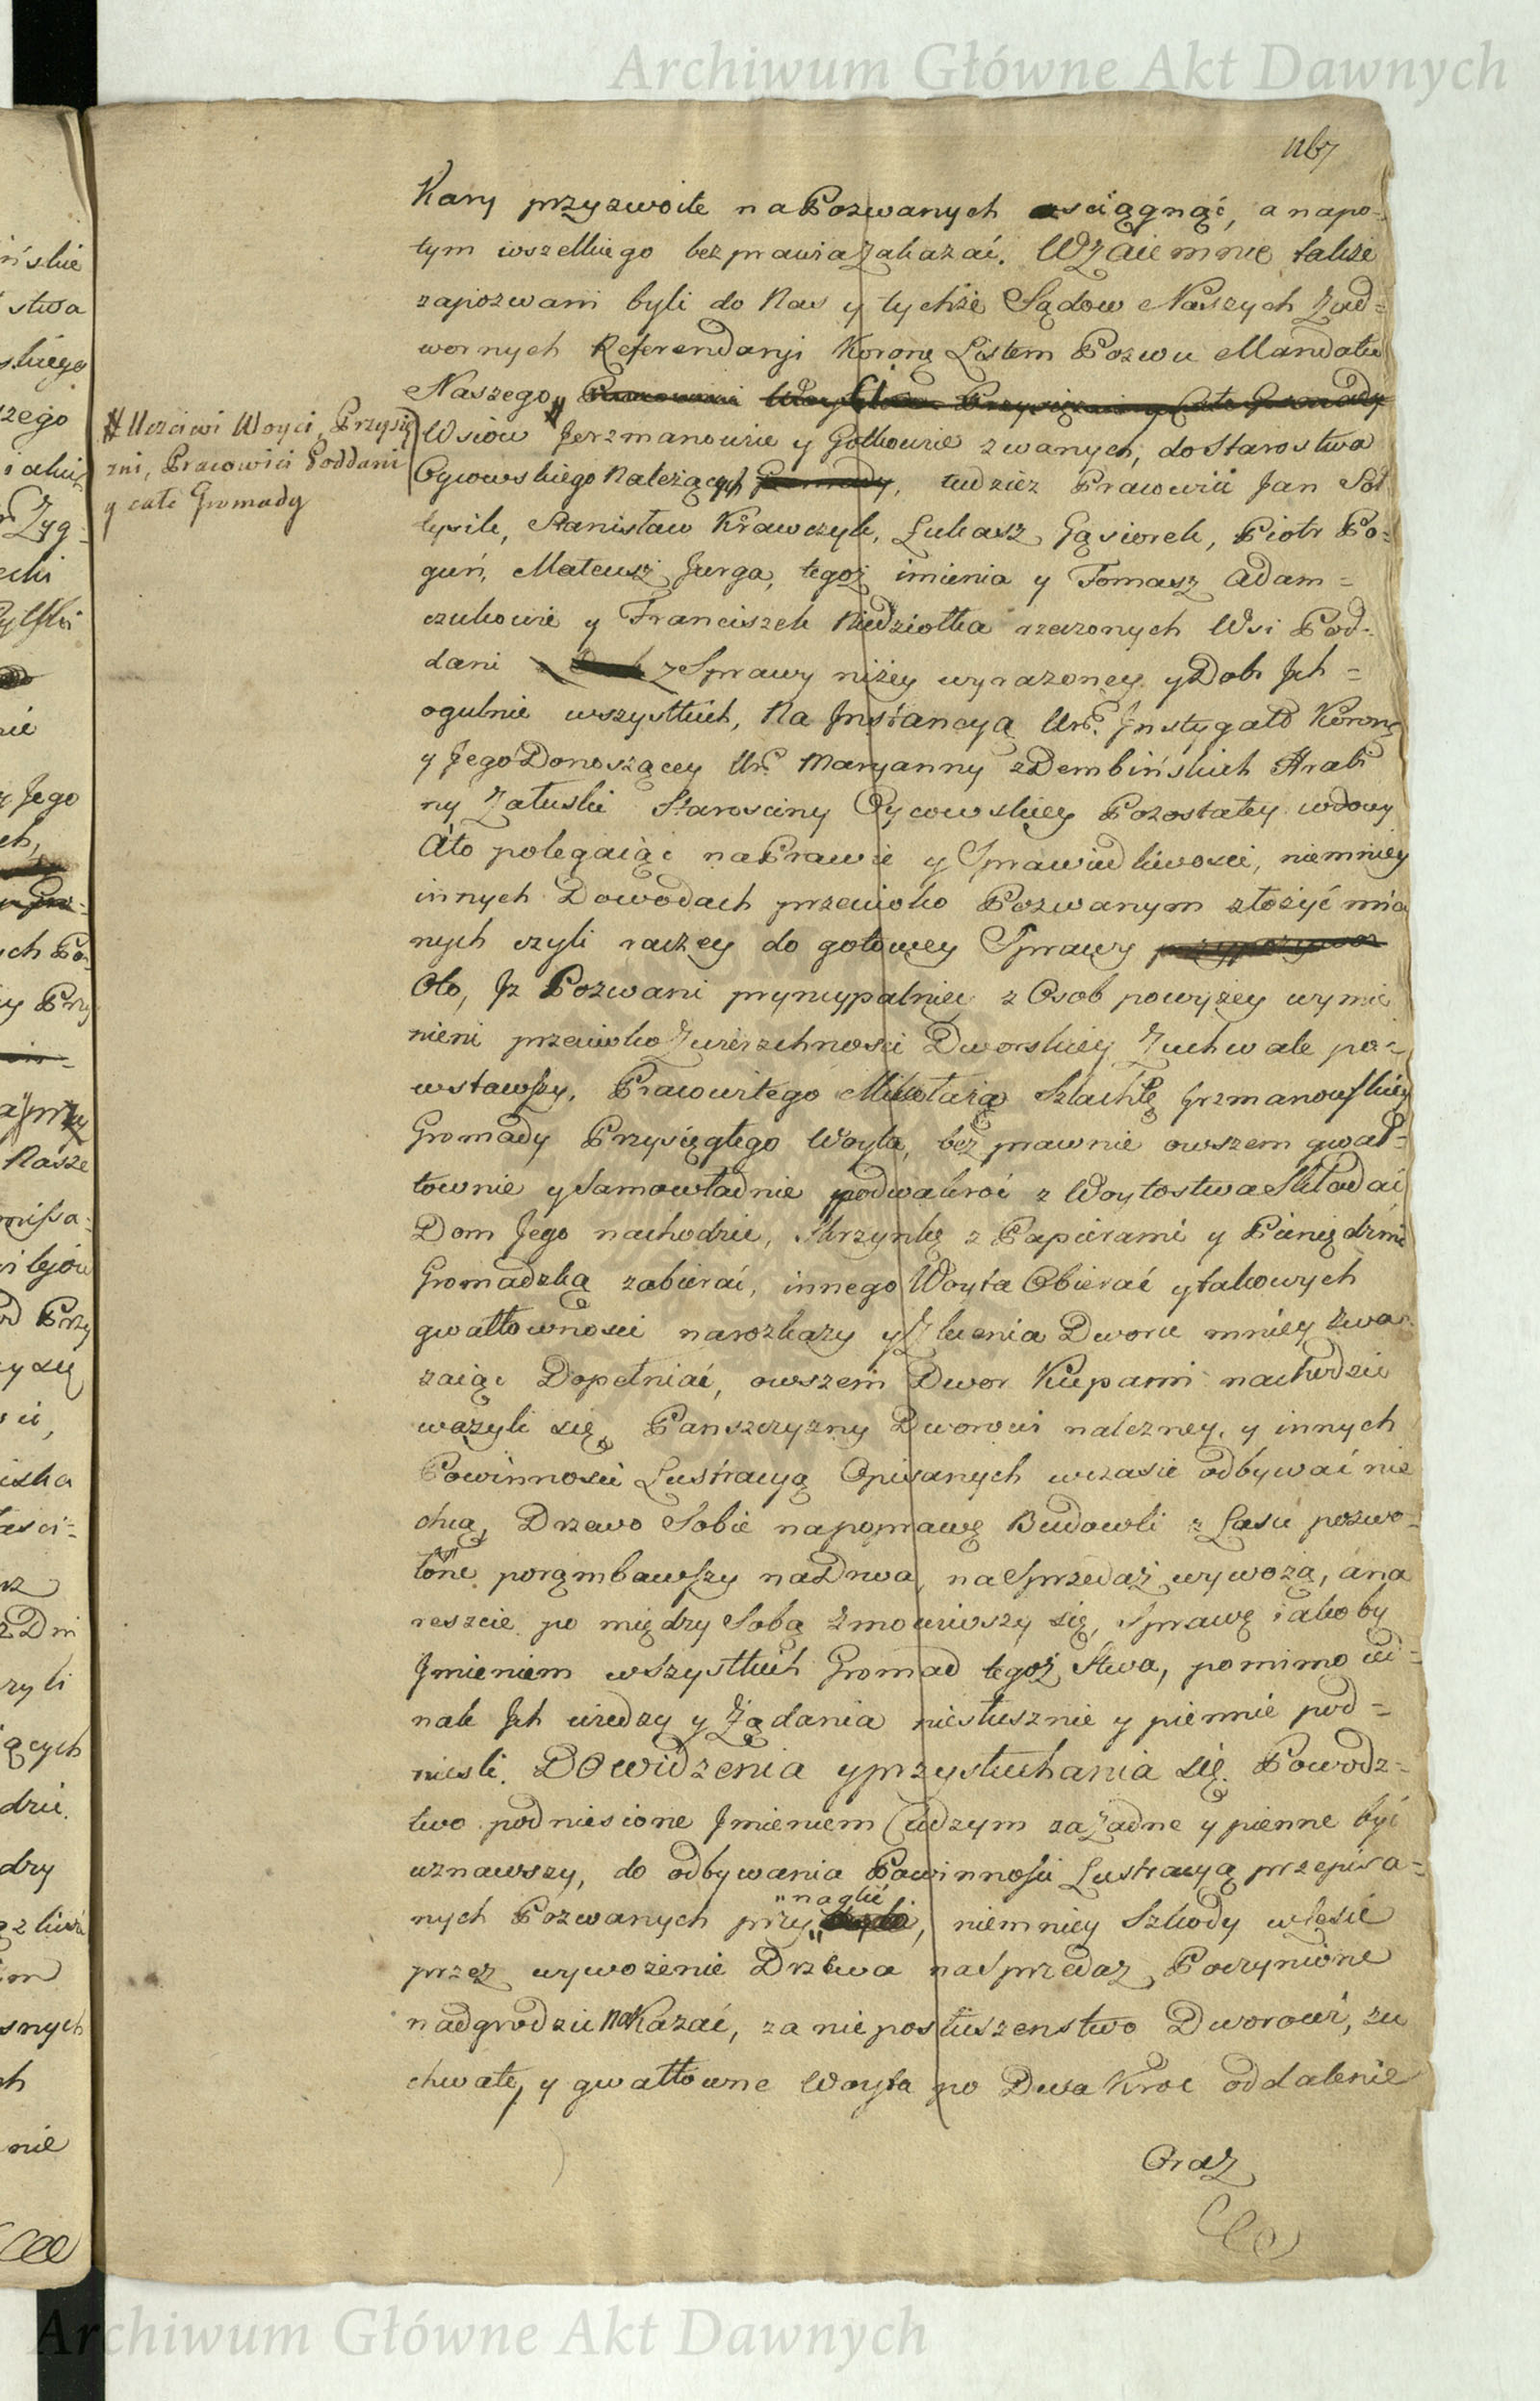 Archiwum Główne Akt Dawnych
Kary przyzwoite na Pozwanych ściągnąć, a napo-
tym wszelkiego bezprawia Zakazać. WZaiemnie także
zapozwani byli do Nas y tychże Sądow Naszych Zad=
wornych Referendaryi Koronę Listem Pozwu Mandatu
Naszego
# Uczciwi Woyci, Przysię
żni, Pracowici Poddani
y całe Gromady
Wsiow Jerzmanowice y Gotkowice zwanych, do Starostwa
Oycowskiego Należących, tudzież Pracowici Jan Soł
tysik, Stanisław Krawczyk, Łukasz Gąsiorek, Piotr Po=
guń, Mateusz Jurga, tegoż imienia y Tomasz Adam=
czukowie y Franciszek Niedziołka rzeczonych Wsi Pod=
dani z Sprawy niżey wyrażoney y Dobr Jch=
ogulnie wszystkich, Na Jnstancyą Ur. Jnstygato Koronę
y Jego Donoszącey Ur. Maryanny z Dembińskich Hrabi
ny Załuski Starościny Oycowskiey Pozostałey wdowy
Ato polegaiąc na Prawie y Sprawiedliwości, niemniey
innych Dowodach przeciwko Pozwanym złożyć mia
nych czyli raczey do gotowey Sprawy
Oto, Jż Pozwani pryncypalniey z Osob powyżey wymie
nieni przeciwko Zwierzchności Dworskiey Zuchwale po=
wstawszy, Pracowitego Mikołaia Szlachtę Jrzmanowskiey
Gromady Przysięgłego Woyta, bezprawnie owszem gwał=
townie y Samowładnie podwakroć z Woytostwa Składać
Dom Jego nachodzić, Skrzynkę z Papierami y Pieniędzmi
Gromadzką zabierać, innego Woyta Obierać y takowych
gwałtowności na rozkazy y Zlecenia Dworu mniey zwa=
zaiąc Dopełniać, owszem Dwor Kupami nachodzić
ważyli się, Pańszczyzny Dworowi należney, y innych
Powinności Lustracyą Opisanych wczasie odbywać nie
chcą, Drzewo Sobie na poprawę Budowli z Lasu pozwo=
lone porąmbawszy na Drwa, na Sprzedaż wywożą, ana
reszcie po między Sobą zmowiwszy się, Sprawę iakoby
Jmieniem wszystkich Gromad tegoż Stwa, pomimo wł=
nale Jch wiedzy y Żądania niesłusznie y piennie pod=
niesli. DO widzenia y przysłuchania się Powodz=
two podniesione Jmieniem Cudzym za Żadne y pienne być
uznawszy, do odbywania Powinności Lustracyą przepisa=
nych Pozwanych przy „naglić, niemniey Szkody w lesie
przez wywożenie Drzewa na Sprzedaż Poczynione
nadgrodzić NaKazać, za nieposłuszeństwo Dworowi, zu
chwałe, y gwałtowne Woyta po Dwa Kroć oddalenie
Oraz
Archiwum Główne Akt Dawnych